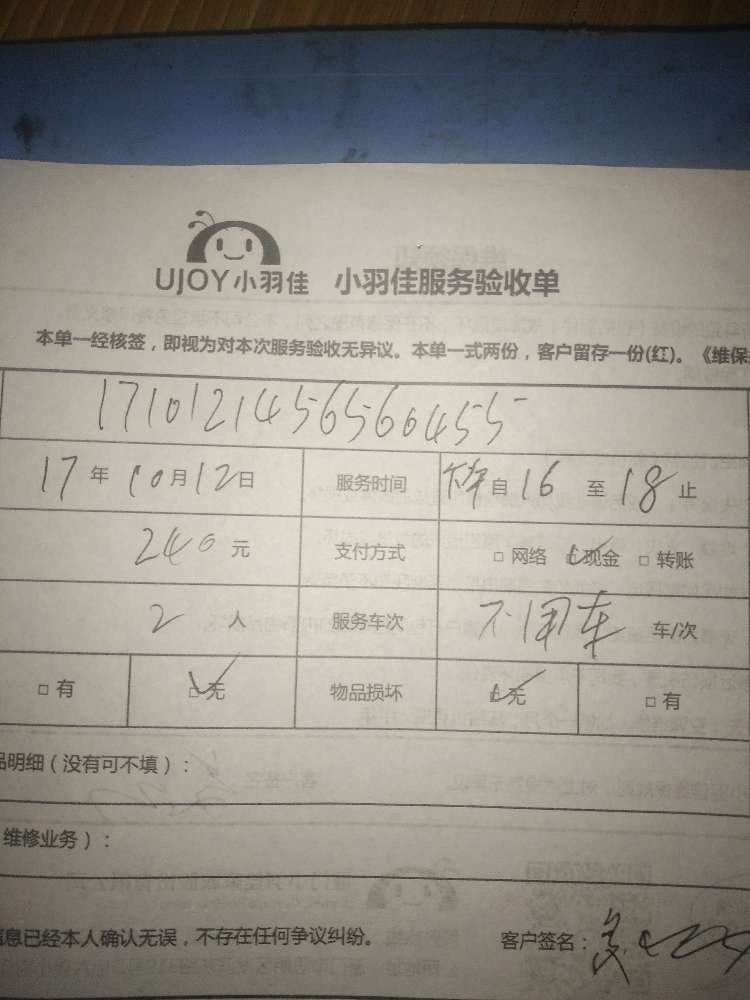 UJOY小羽佳 小羽佳服务验收单
本单一经核签，即视为对本次服务验收无异议。本单一式两份，客户留存一份(红)。《维保
17101214565660455
17年 10月12日 服务时间 自16 至 18止
240元 支付方式 □ 网络 □现金 □ 转账
2人 服务车次 不用车 车/次
□ 有 □无 物品损坏 □无 □ 有
品明细（没有可不填）：
维修业务）：
信息已经本人确认无误，不存在任何争议纠纷。 客户签名：